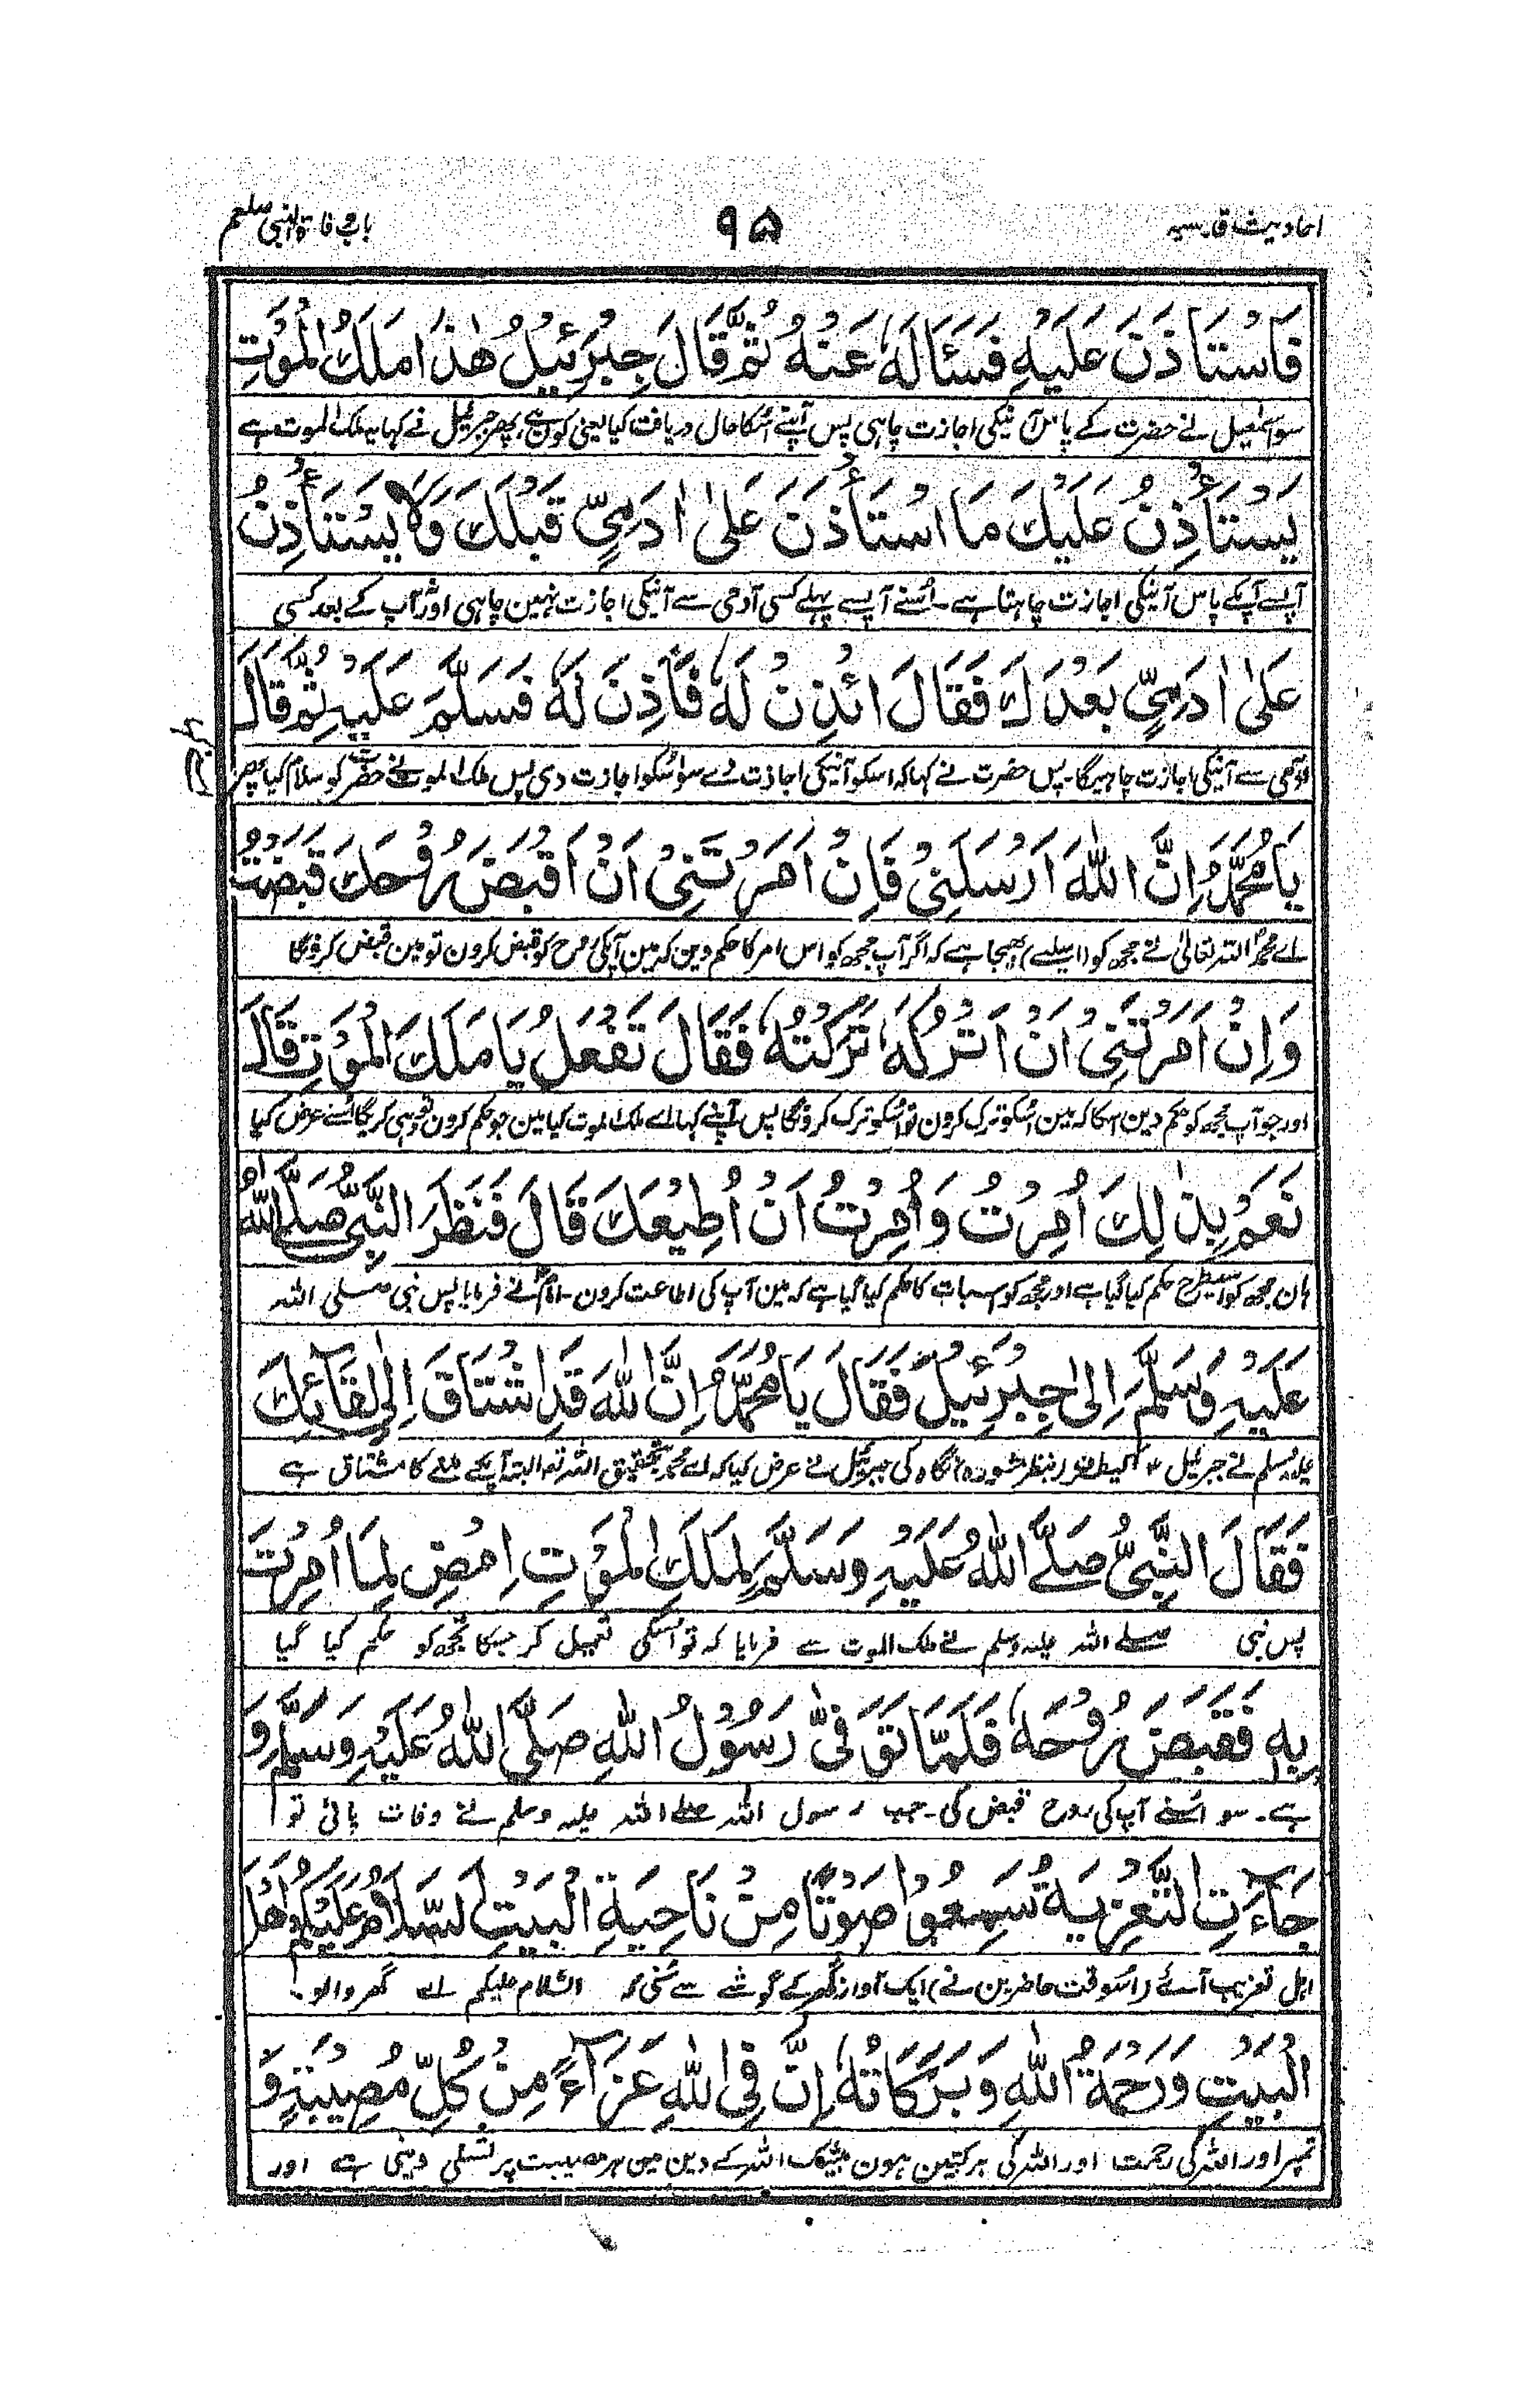 احادیث قدسیہ ۹۵ باب وفاۃ النبی صلعم
فَاسْتَاْذَنَ عَلَيْهِ فَسَئَالَهٗ عَنْهُ ثُمَّ قَالَ جِبْرَئِيْلُ هٰذَا مَلَكُ الْمَوْتِ
سو اسمٰعیل نے حضرت کے پاس آنیکی اجازت چاہی پس آپنے اُسکا حال دریافت کیا یعنی کون ہے پھر جبرئیل نے کہا یہ ملک الموت ہے
يَسْتَأْذِنُ عَلَيْكَ مَا اسْتَأْذَنَ عَلٰى اٰدَمِيٍّ قَبْلَكَ وَلَا يَسْتَأْذِنُ
آپسے آپکے پاس آنیکی اجازت چاہتا ہے۔ اُسنے آپسے پہلے کسی آدمی سے آنیکی اجازت نہین چاہی اور آپ کے بعد کسی
عَلٰى اٰدَمِيٍّ بَعْدَكَ فَقَالَ ائْذِنْ لَهٗ فَأَذِنَ لَهٗ فَسَلَّمَ عَلَيْهِ ثُمَّ قَالَ
آدمی سے آنیکی اجازت چاہیگا۔ پس حضرت نے کہا کہ اسکو آنیکی اجازت دے سو اُسکو اجازت دی پس ملک الموت نے حضرت کو سلام کیا پھر
يَا مُحَمَّدُ اِنَّ اللّٰهَ اَرْسَلَنِيْ فَاِنْ اَمَرْتَنِيْ اَنْ اَقْبِضَ رُوْحَكَ قَبَضْتُ
اے محمدؐ اللہ تعالیٰ نے مجھ کو (اسلیے) بھیجا ہے کہ اگر آپ مجھ کو اس امر کا حکم دین کہ مین آپکی روح کو قبض کرون تو مین قبض کرونگا
وَاِنْ اَمَرْتَنِيْ اَنْ اَتْرُكَهٗ تَرَكْتُهٗ فَقَالَ تَفْعَلُ يَا مَلَكَ الْمَوْتِ قَالَ
اور جو آپ مجھ کو حکم دین اسکا کہ مین اُسکو ترک کرون تو اُسکو ترک کرونگا پس آپنے کہا اے ملک الموت کیا مین جو حکم کرون تو وہی کریگا اُسنے عرض کیا
نَعَمْ بِذٰلِكَ اُمِرْتُ وَاُمِرْتُ اَنْ اُطِيْعَكَ قَالَ فَنَظَرَ النَّبِيُّ صَلَّى اللّٰهُ
ہان مجھ کو اسیطرح حکم کیا گیا ہے اور مجھ کو اسبات کا حکم کیا گیا ہے کہ مین آپ کی اطاعت کرون۔ امام نے فرمایا پس نبی صلی اللہ
عَلَيْهِ وَسَلَّمَ اِلٰى جِبْرَئِيْلَ فَقَالَ يَا مُحَمَّدُ اِنَّ اللّٰهَ قَدِ اشْتَاقَ اِلٰى لِقَآئِكَ
علیہ وسلم نے جبرئیل کیطرف (بنظر مشورہ) نگاہ کی جبرئیل نے عرض کیا کہ اے محمد تحقیق اللہ تعالی البتہ آپکے ملنے کا مشتاق ہے
فَقَالَ النَّبِيُّ صَلَّى اللّٰهُ عَلَيْهِ وَسَلَّمَ لِمَلَكِ الْمَوْتِ اِمْضِ لِمَا اُمِرْتَ
پس نبی صلے اللہ علیہ وسلم نے ملک الموت سے فرمایا کہ تو اُسکی تعمیل کر جسکا تجھ کو حکم کیا گیا
بِهٖ فَقَبَضَ رُوْحَهٗ فَلَمَّا تُوُفِّيَ رَسُوْلُ اللّٰهِ صَلَّى اللّٰهُ عَلَيْهِ وَسَلَّمَ وَ
ہے۔ سو اُسنے آپ کی روح قبض کی۔ جب رسول اللہ صلے اللہ علیہ وسلم نے وفات پائی تو
جَآءَتِ التَّعْزِيَةُ سَمِعُوْا صَوْتًا مِنْ نَاحِيَةِ الْبَيْتِ اَلسَّلَامُ عَلَيْكُمْ اَهْلَ
اہل تعزیت آئے (اُسوقت حاضرین نے) ایک آواز گھر کے گوشے سے سُنی کہ السّلام علیکم اے گھر والو
الْبَيْتِ وَرَحْمَةُ اللّٰهِ وَبَرَكَاتُهٗ اِنَّ فِي اللّٰهِ عَزَآءً مِنْ كُلِّ مُصِيْبَةٍ وَ
تمپر اور اللہ کی رحمت اور اللہ کی برکتین ہون بیشک اللہ کے دین مین ہر مصیبت پر تسلی دینی ہے اور